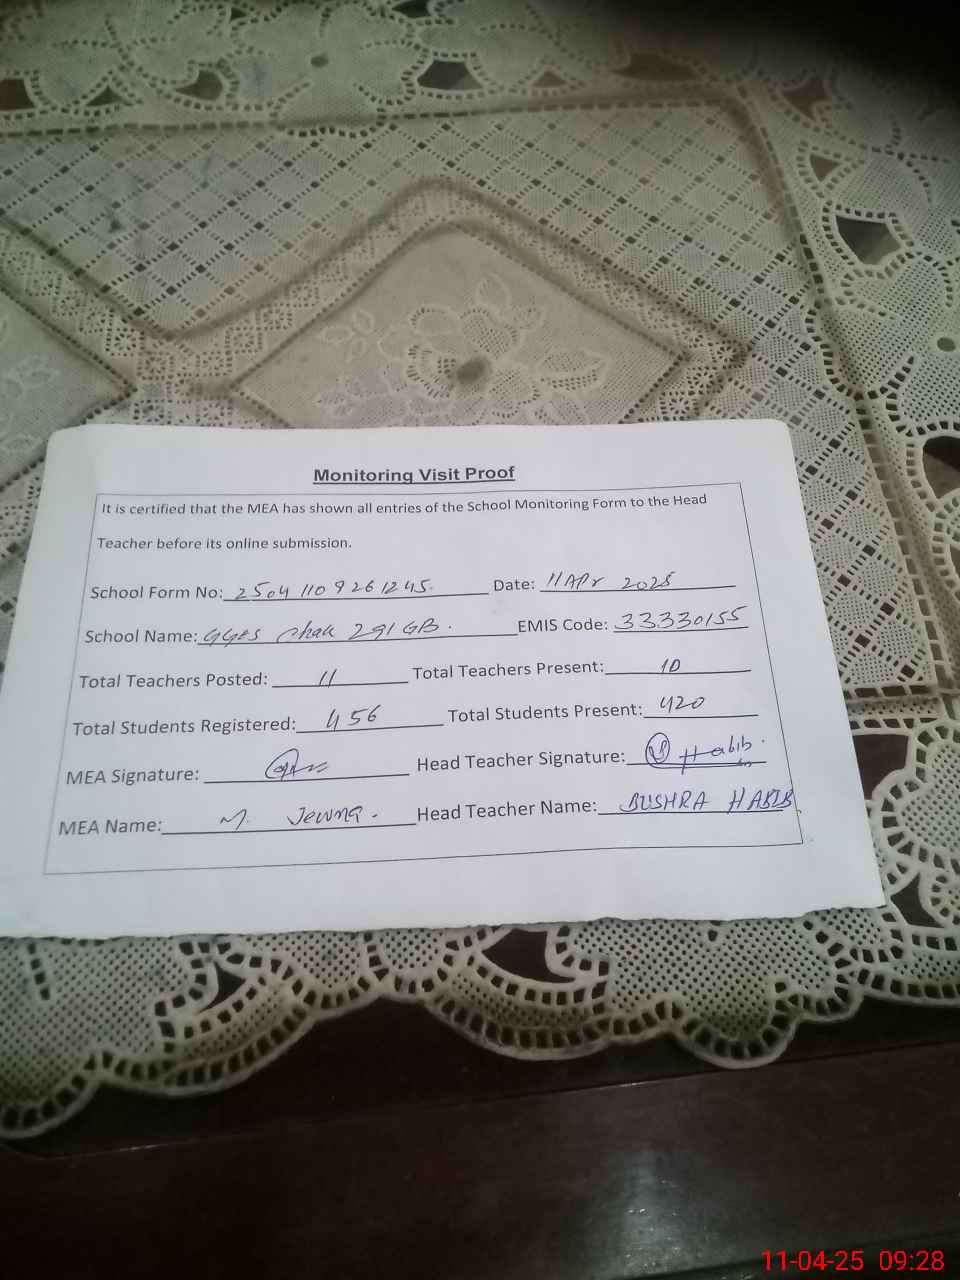 Monitoring Visit Proof
It is certified that the MEA has shown all entries of the School Monitoring Form to the Head
Teacher before its online submission.
School Form No: 25041109261245. Date: 11 Apr 2025
School Name: GGES Chak 291 GB. EMIS Code: 33330155
Total Teachers Posted: 11 Total Teachers Present: 10
Total Students Registered: 456 Total Students Present: 420
MEA Signature: Head Teacher Signature: Habib.
MEA Name: M. Head Teacher Name: BUSHRA HABIB
11-04-25 09:28